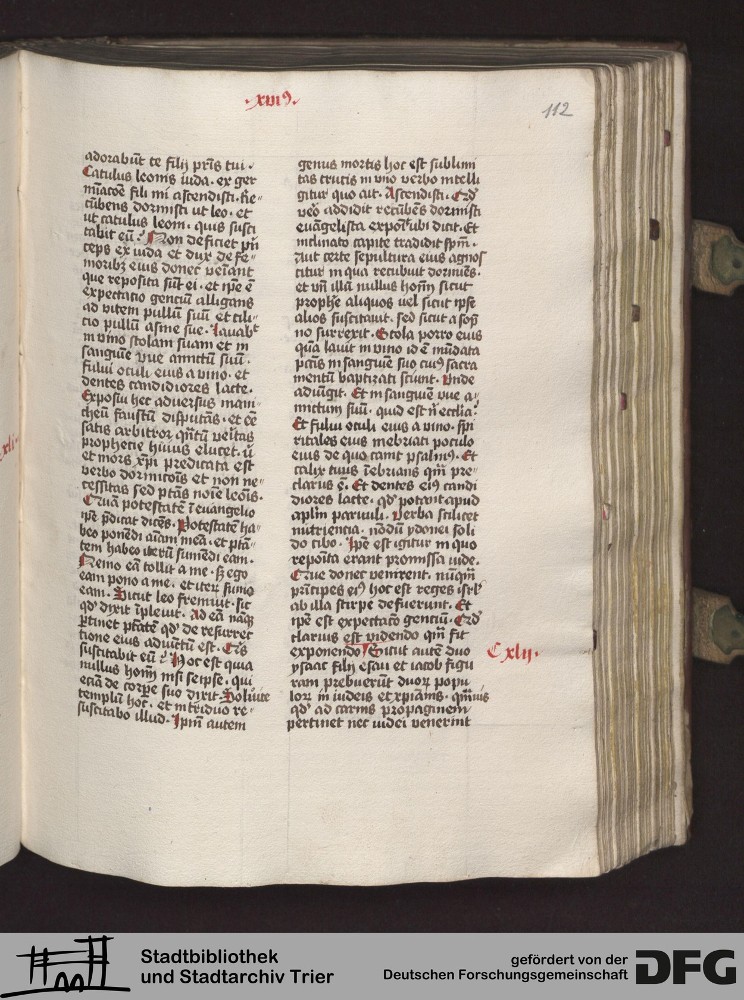 ·xviꝰ·
112
adorabūt te filij pr̄is tui ·
Catulus leonis iuda · ex ger
mīatōe fili mi ascendisti · Re
cūbens dormisti ut leo · et
ut catulus leoni · quis susci
tabit eū? Non deficiet prī
ceps ex iuda et dux de fe
moribꝫ eius donec veiant
que reposita sūt ei · et ip̄e ē
expectatio genciū alligans
ad vitem pullū suū et cili
cio pullū asine sue · lauabᵗ
in vino stolam suam et in
sanguīe vue amictū suū ·
fului oculi eius a vino · et
dentes candidiores lacte ·
Exposui hec adversus mani
cheū faustū disputās · et eē
satis arbitror qn̄tū veritas
prophetie huius elucet · ū
et mors xp̄i predicata est
verbo dormicōis et non ne
cessitas sed p̄tās noīe leōis ·
Quā potestatē ī euangelio
ip̄e p̄dicat dicēs · Potestatē ha
beo ponēdi aīam meā · et p̄tā
tem habeo iterū sumēdi eam ·
Nemo eā tollit a me · sꝫ ego
eam pono a me · et iterꝫ sumo
eam · Sicut leo fremuit · sic
qd̓ dixit īpleuit · Ad eā nāqꝫ
ꝑtinet p̄tatē qd̓ de resurrec
tione eius adiūctū est · Q̓s
suscitabit eū? Hoc est quia
nullus hom̄ nisi seipse · qui
eciā de corꝑe suo dixit · Soluite
templū hoc · et in triduo re
suscitabo illud · Ipm̄ autem
genus mortis hoc est sublimi
tas crucis in vno verbo intelli
gitur quo ait · Ascendisti · Qd̓
veō addidit recūbēs dormisti
euāgelista exponit ubi dicit · Et
inclinato capite tradidit sp̄m ·
Aut certe sepultura eius agnos
citur in qua recubuit dormiēs ·
et vn̄ illū nullus hom̄ sicut
prophe aliquos vel sicut ipse
alios suscitauit · sed sicut a sop̄
no surrexit · Stola porro eius
quā lauit in vino id ē mūdata
pctis in sanguīe suo cuiꝰ sacra
mentū baptizati sciunt · Vnde
adiūgit · Et in sanguīe vue a
mictum suū · quid est n̄ ecclīa?
Et fului oculi eius a vino · sp̄i
ritales eius inebriati poculo
eius de quo canit psalmꝰ · Et
calix tuus īebrians qm̄ pre
clarus ē · Et dentes eiꝰ candi
diores lacte · qd̓ potāt apud
aplm̄ paruuli · verba scilicet
nutriencia · nōdū ydonei soli
do cibo · Ip̄e est igitur in quo
reposita erant promissa iude ·
Que donec venirent · nūq̄m
prīcipes eiꝰ hoc est reges isrl̄
ab illa stirpe defuerunt · Et
ip̄e est expectacō genciū · Qd̓
clarius est videndo qm̄ fit
exponendo Sicut autē duo
ysaac filij esau et iacob figu
ram prebuerūt duorꝫ popu
lorꝫ in iudeis et xp̄ianis · q̄mvis
qd̓ ad carnis propaginem
pertinet nec iudei venerint
Cxlij·
xli·
Stadtbibliothek
und Stadtarchiv Trier
gefördert von der
Deutschen Forschungsgemeinschaft
DFG